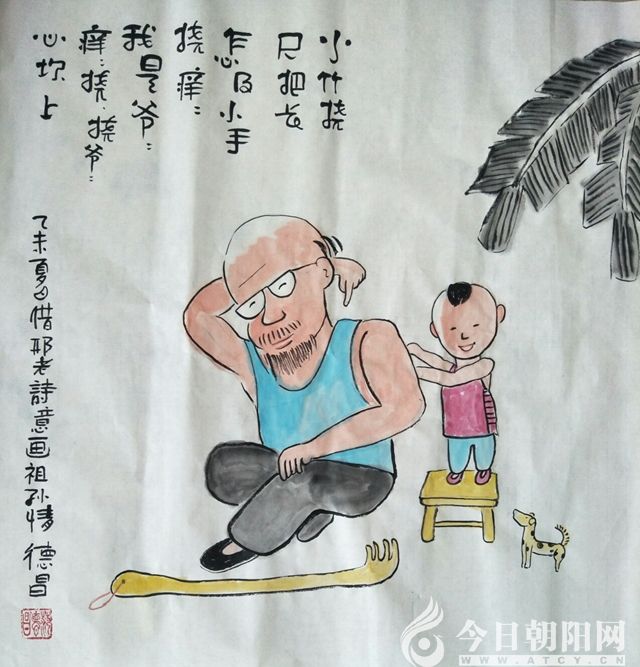 小竹挠
尺把长
怎及小手
挠痒〻
我是爷〻
痒〻挠〻挠爷〻
心坎上
乙未夏日借邢老詩意画祖孙情 德昌
今日朝阳网
WWW.ATCY.CN